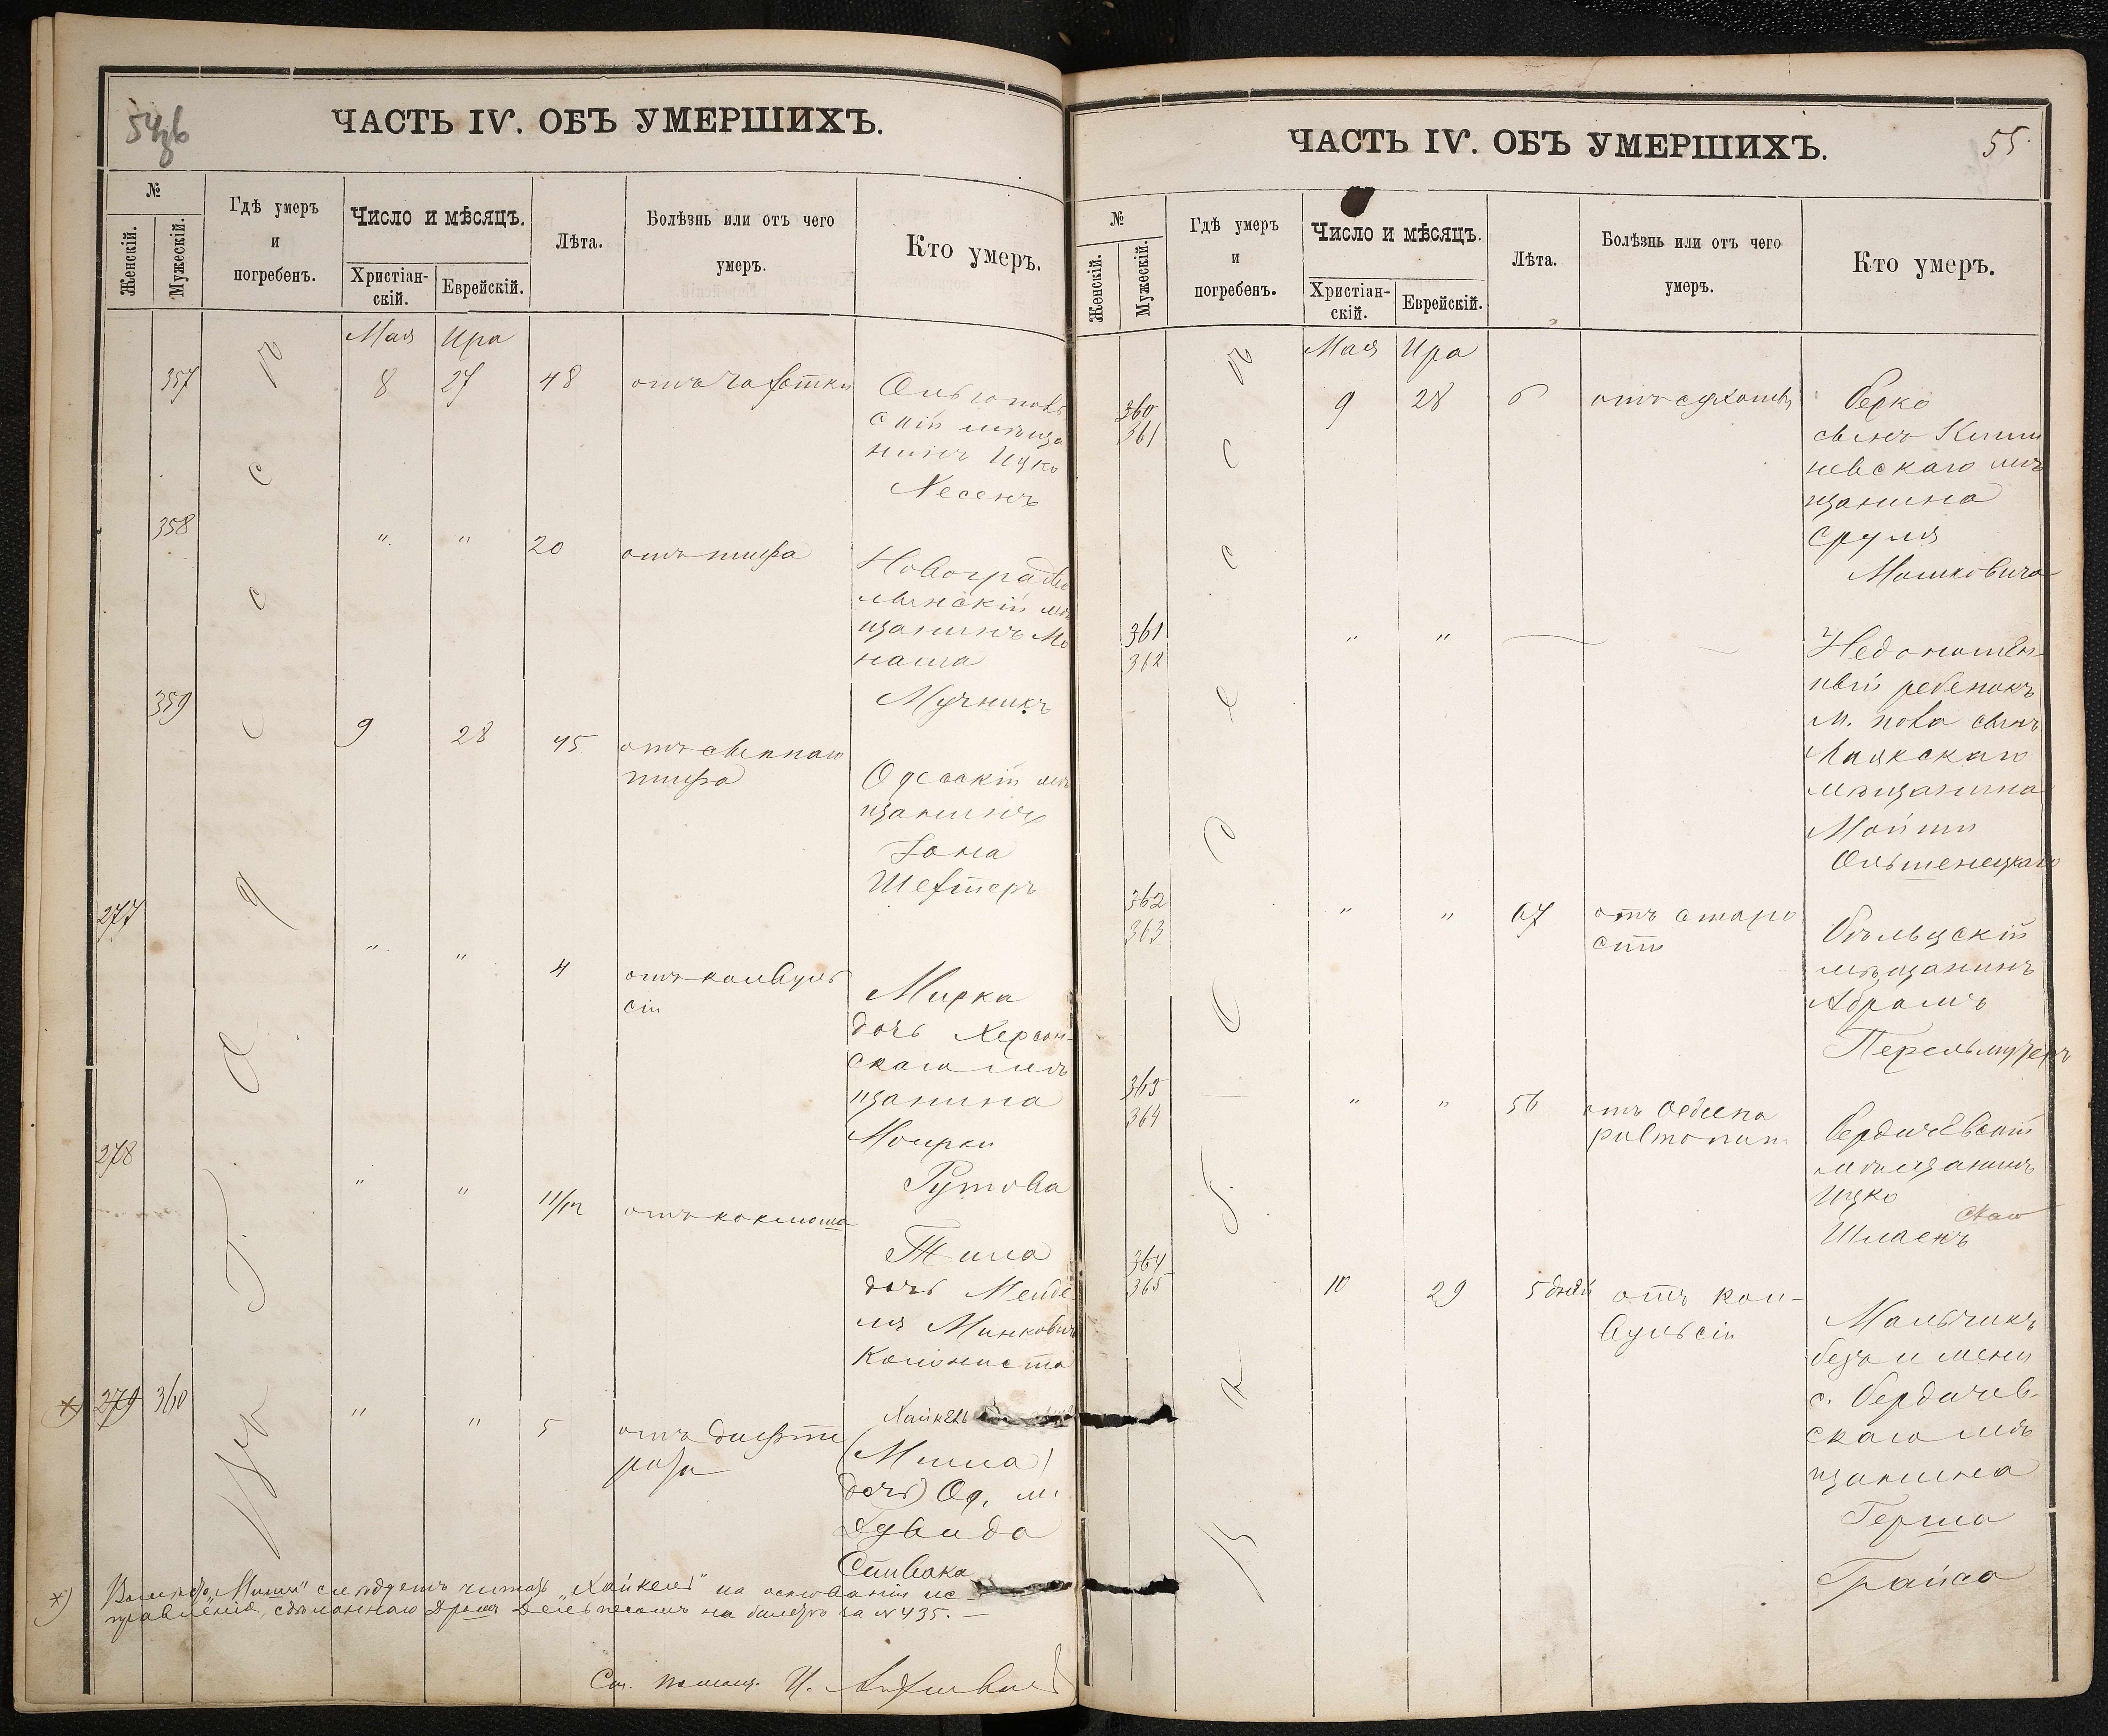 54
ЧАСТЬ IV. ОБЪ УМЕРШИХЪ.
№
Женскій.
Мужескій.
Гдѣ умеръ
и
погребенъ.
Число и мѣсяцъ.
Христіан-
скій.
Еврейскій.
Лѣта.
Болѣзнь или отъ чего
умеръ.
Кто умеръ.
Мая Ира
357 8 27 48 отъ чахотки
скій мѣща
нинъ Ицко
Хесенъ
358 " " 20 отъ тифа
Новоградво
лынскій мѣ
щанинъ Мо
наша
Мучникъ
359 9 28 45 отъ сыпнаго
тифа
Одесскій мѣ
щанинъ
Іона
Шехтеръ
277 " " 4 отъ конвуль
сіи
Мирка
дочь Херсон-
скаго мѣ
щанина
Мошки
Гутова
278 " " 11/м отъ коклюша
дочь Менде
ля Минкович
Колониста
*) 279 360 " " 5 отъ дифте
рита
Хайкель
(Миша)
дочь) Од. м.
Дувида
Спивака
*) Вмѣсто „Миша" слѣдуетъ читать „Хайкель" на основаніи ис-
правленія, сдѣланнаго Дромъ на билетѣ за №435. —
См. помощ. И.
55
ЧАСТЬ IV. ОБЪ УМЕРШИХЪ.
№
Женскій.
Мужескій.
Гдѣ умеръ
и
погребенъ.
Число и мѣсяцъ.
Христіан-
скій.
Еврейскій.
Лѣта.
Болѣзнь или отъ чего
умеръ.
Кто умеръ.
Мая Ира
360 9 28 6
361
Берко
сынъ Киши
невскаго мѣ
щанина
Сруля
Мошковича
361 " "
362
Недоношен-
ный ребенокъ
м. пола сынъ
мѣщанина
Мойши
Ольшенецкаго
362 " " 67 отъ старо
363 сти
Бѣльцскій
мѣщанинъ
Абрамъ
Перельмутеръ
363 " " 56 отъ Oedema
364 pulmonum
Бердичевскій
мѣщанинъ
Ицко
Шпаенъ
364 10 29 5 дней отъ кон-
365 вульсіи
Мальчикъ
безъ имени
с. Бердичев-
скаго мѣ
щанина
Герша
Грайса